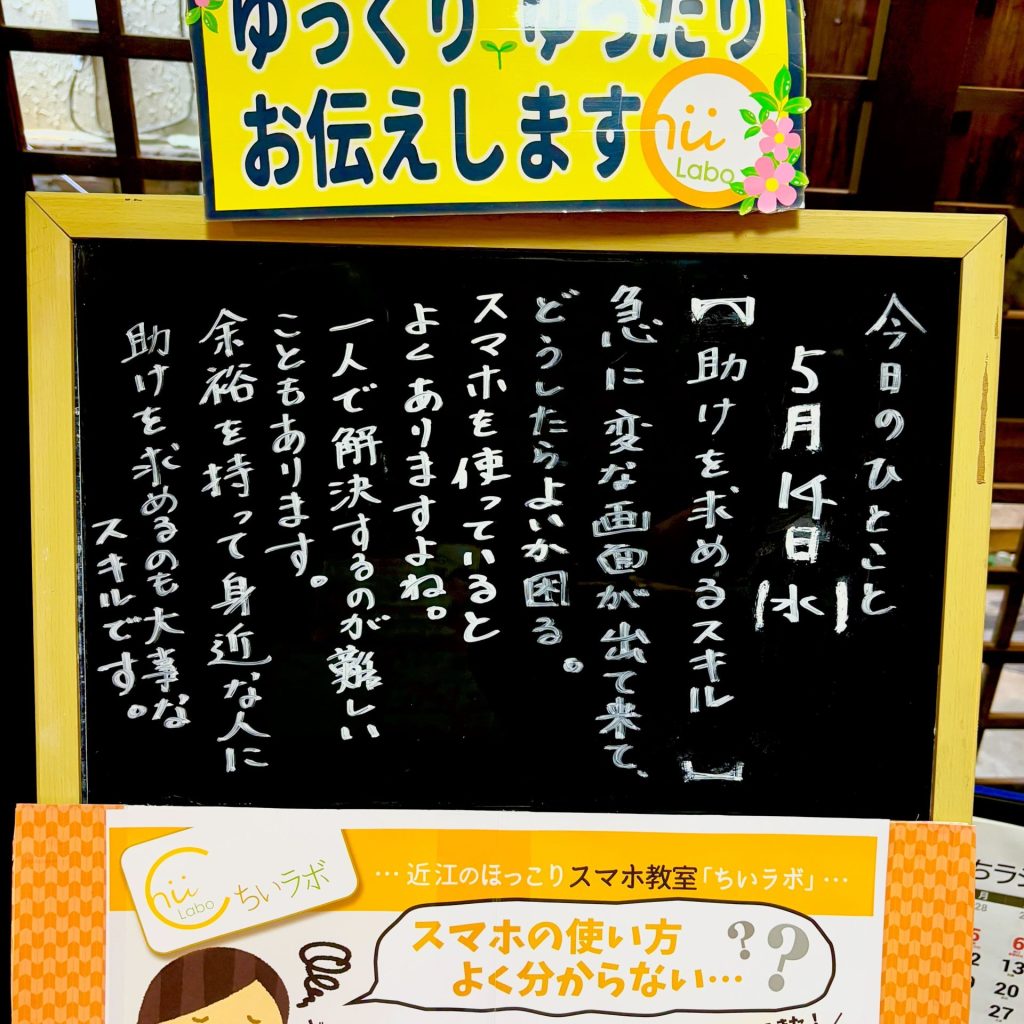 ゆっくり ゆったり
お伝えします
Chii
Labo
今日のひとこと
5月14日(水)
【助けを求めるスキル】
急に変な画面が出て来て、
どうしたらよいか困る。
スマホを使っていると
よくありますよね。
一人で解決するのが難しい
こともあります。
余裕を持って身近な人に
助けを求めるのも大事な
スキルです。
Chii
Labo
ちいラボ
…近江のほっこりスマホ教室「ちいラボ」…
スマホの使い方
よく分からない…??
ちラ
月
28
5
6
12
13
20
27